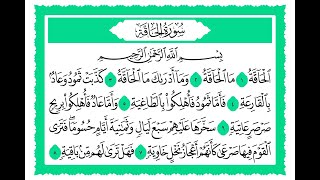 سُورَةُ الحَاقَّةِ
بِسْمِ اللَّهِ الرَّحْمَٰنِ الرَّحِيمِ
الْحَاقَّةُ ١ مَا الْحَاقَّةُ ٢ وَمَا أَدْرَىٰكَ مَا الْحَاقَّةُ ٣ كَذَّبَتْ ثَمُودُ وَعَادٌۢ
بِالْقَارِعَةِ ٤ فَأَمَّا ثَمُودُ فَأُهْلِكُوا۟ بِالطَّاغِيَةِ ٥ وَأَمَّا عَادٌ فَأُهْلِكُوا۟ بِرِيحٍ
صَرْصَرٍ عَاتِيَةٍ ٦ سَخَّرَهَا عَلَيْهِمْ سَبْعَ لَيَالٍ وَثَمَٰنِيَةَ أَيَّامٍ حُسُومًا فَتَرَى
الْقَوْمَ فِيهَا صَرْعَىٰ كَأَنَّهُمْ أَعْجَازُ نَخْلٍ خَاوِيَةٍ ٧ فَهَلْ تَرَىٰ لَهُم مِّنۢ بَاقِيَةٍ ٨